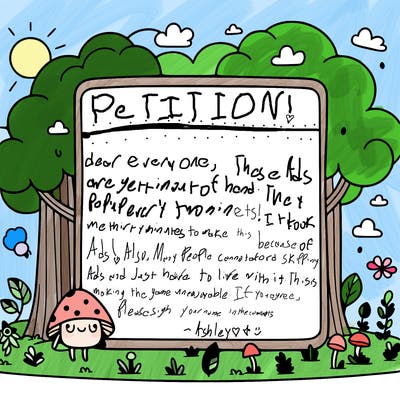 PeTITION!
dear everyone, These Ads
are getting out of hand. They
PoP uP every two minets! It took
me thirty minutes to make this because of
Ads! Also, Most People cannot aford skipping
Ads and Just have to live with it. This is
making the game unenjoyable If you agree,
Please sign your name in the comments
~Ashley♡✌☺